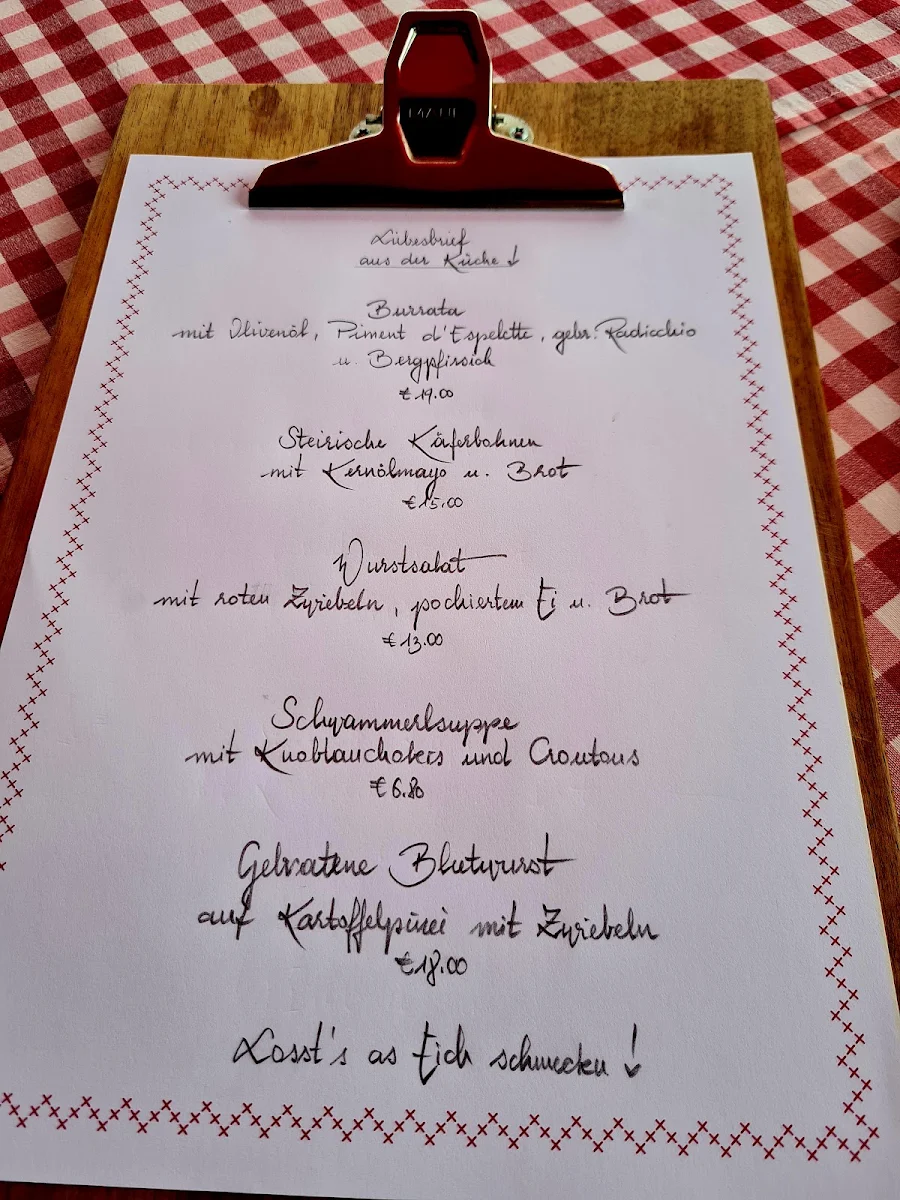 Liebesbrief
aus der Küche!
Burrata
mit Olivenöl, Piment d'Espelette, gebr. Radicchio
u. Bergpfirsich
€ 19.00
Steirische Käferbohnen
mit Kernölmayo u. Brot
€ 15.00
Wurstsalat
mit roten Zwiebeln, pochiertem Ei u. Brot
€ 13.00
Schwammerlsuppe
mit Knoblauchobers und Croutons
€ 6.80
Gebratene Blutwurst
auf Kartoffelpüree mit Zwiebeln
€ 18.00
Losst's as Eich schmecken!